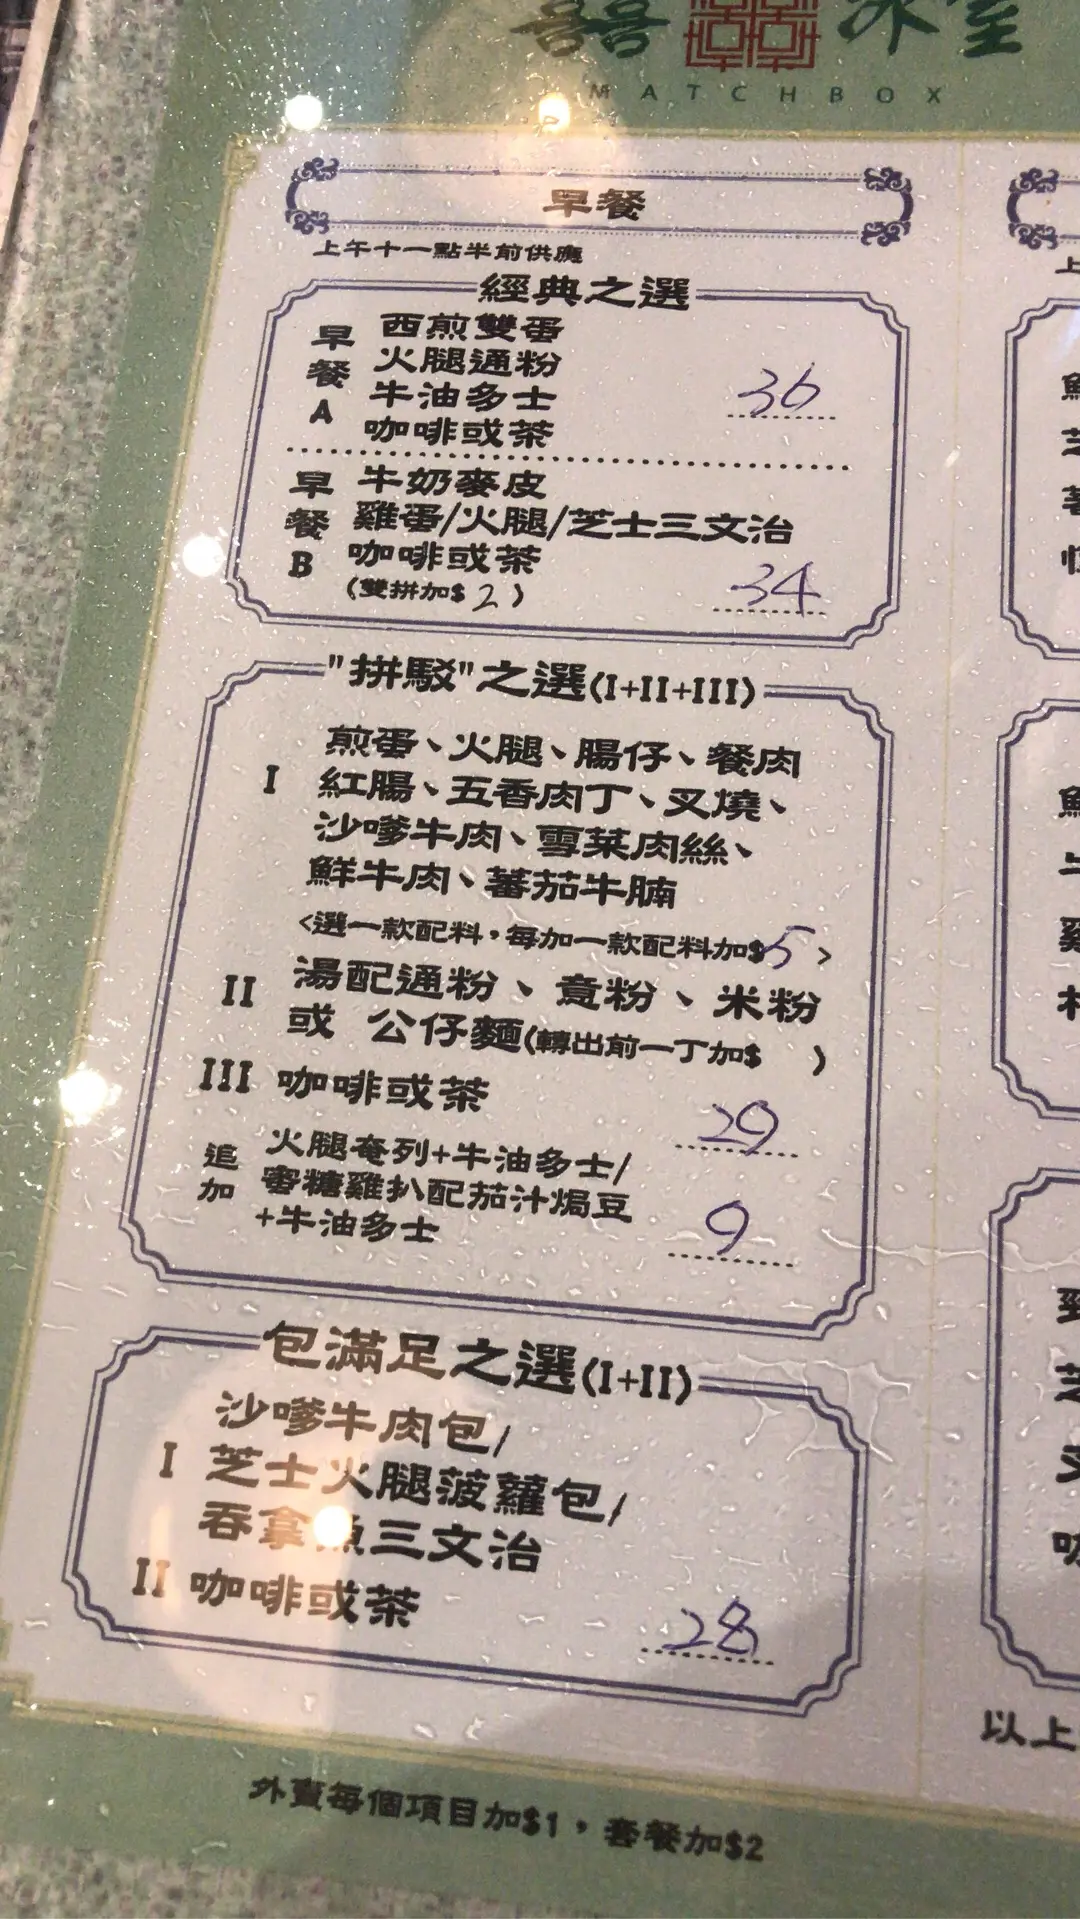 喜喜 冰室
MATCHBOX
早餐
上午十一點半前供應
經典之選
早餐A
西煎雙蛋
火腿通粉
牛油多士
咖啡或茶
36
早餐B
牛奶麥皮
雞蛋/火腿/芝士三文治
咖啡或茶
(雙拼加$2)
34
"拼駁"之選(I+II+III)
I
煎蛋、火腿、腸仔、餐肉
紅腸、五香肉丁、叉燒、
沙嗲牛肉、雪菜肉絲、
鮮牛肉、蕃茄牛腩
<選一款配料，每加一款配料加$5>
II
湯配通粉、意粉、米粉
或 公仔麵(轉出前一丁加$ )
III 咖啡或茶
29
追加
火腿奄列+牛油多士/
蜜糖雞扒配茄汁焗豆
+牛油多士
9
包滿足之選(I+II)
沙嗲牛肉包/
I 芝士火腿菠蘿包/
吞拿魚三文治
II 咖啡或茶
28
外賣每個項目加$1，套餐加$2
以上